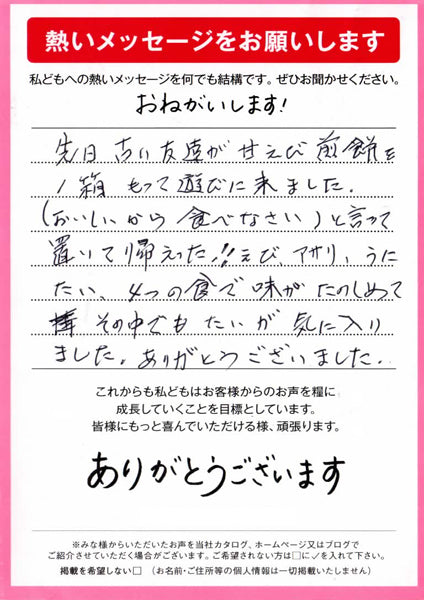 熱いメッセージをお願いします
私どもへの熱いメッセージを何でも結構です。ぜひお聞かせください。
おねがいします!
先日 古い友達が 甘えび 煎餅を
1箱 もって遊びに来ました.
(おいしいから 食べなさい)と言って
置いて帰えった!!えび、アサリ、うに
たい、4つの食で味がたのしめて
その中でもたいが気に入り
ました。ありがとうございました.
これからも私どもはお客様からのお声を糧に
成長していくことを目標としています。
皆様にもっと喜んでいただける様、頑張ります。
ありがとうございます
※みな様からいただいたお声を当社カタログ、ホームページ又はブログで
ご紹介させていただく場合がございます。ご希望されない方は□に✓を入れて下さい。
掲載を希望しない□ (お名前・ご住所等の個人情報は一切掲載いたしません)